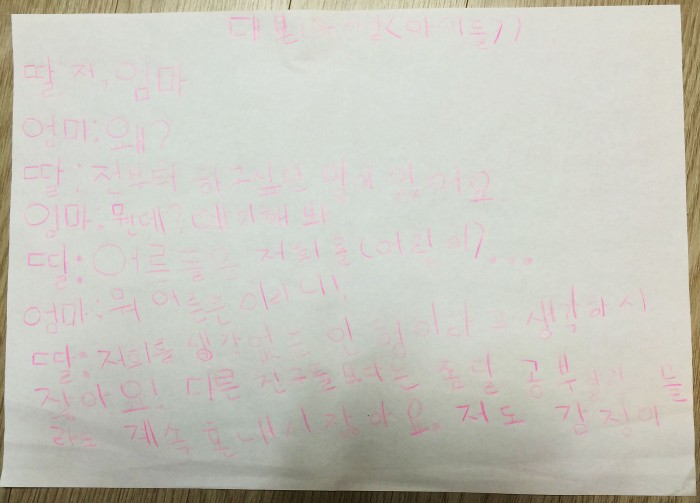 대본 (아이들)
딸 저, 엄마
엄마:왜?
딸:전부터 하고싶던 말이 있어요
엄마:뭔데? 얘기해 봐
딸:어른들은 저희를(어린이)...
엄마:뭐 어른은 이라니!
딸:저희를 생각없는 인형이라고 생각하시
잖아요! 다른 친구들보다는 좀 덜 공부
라는 계속 혼내시잖아요. 저도 감정이